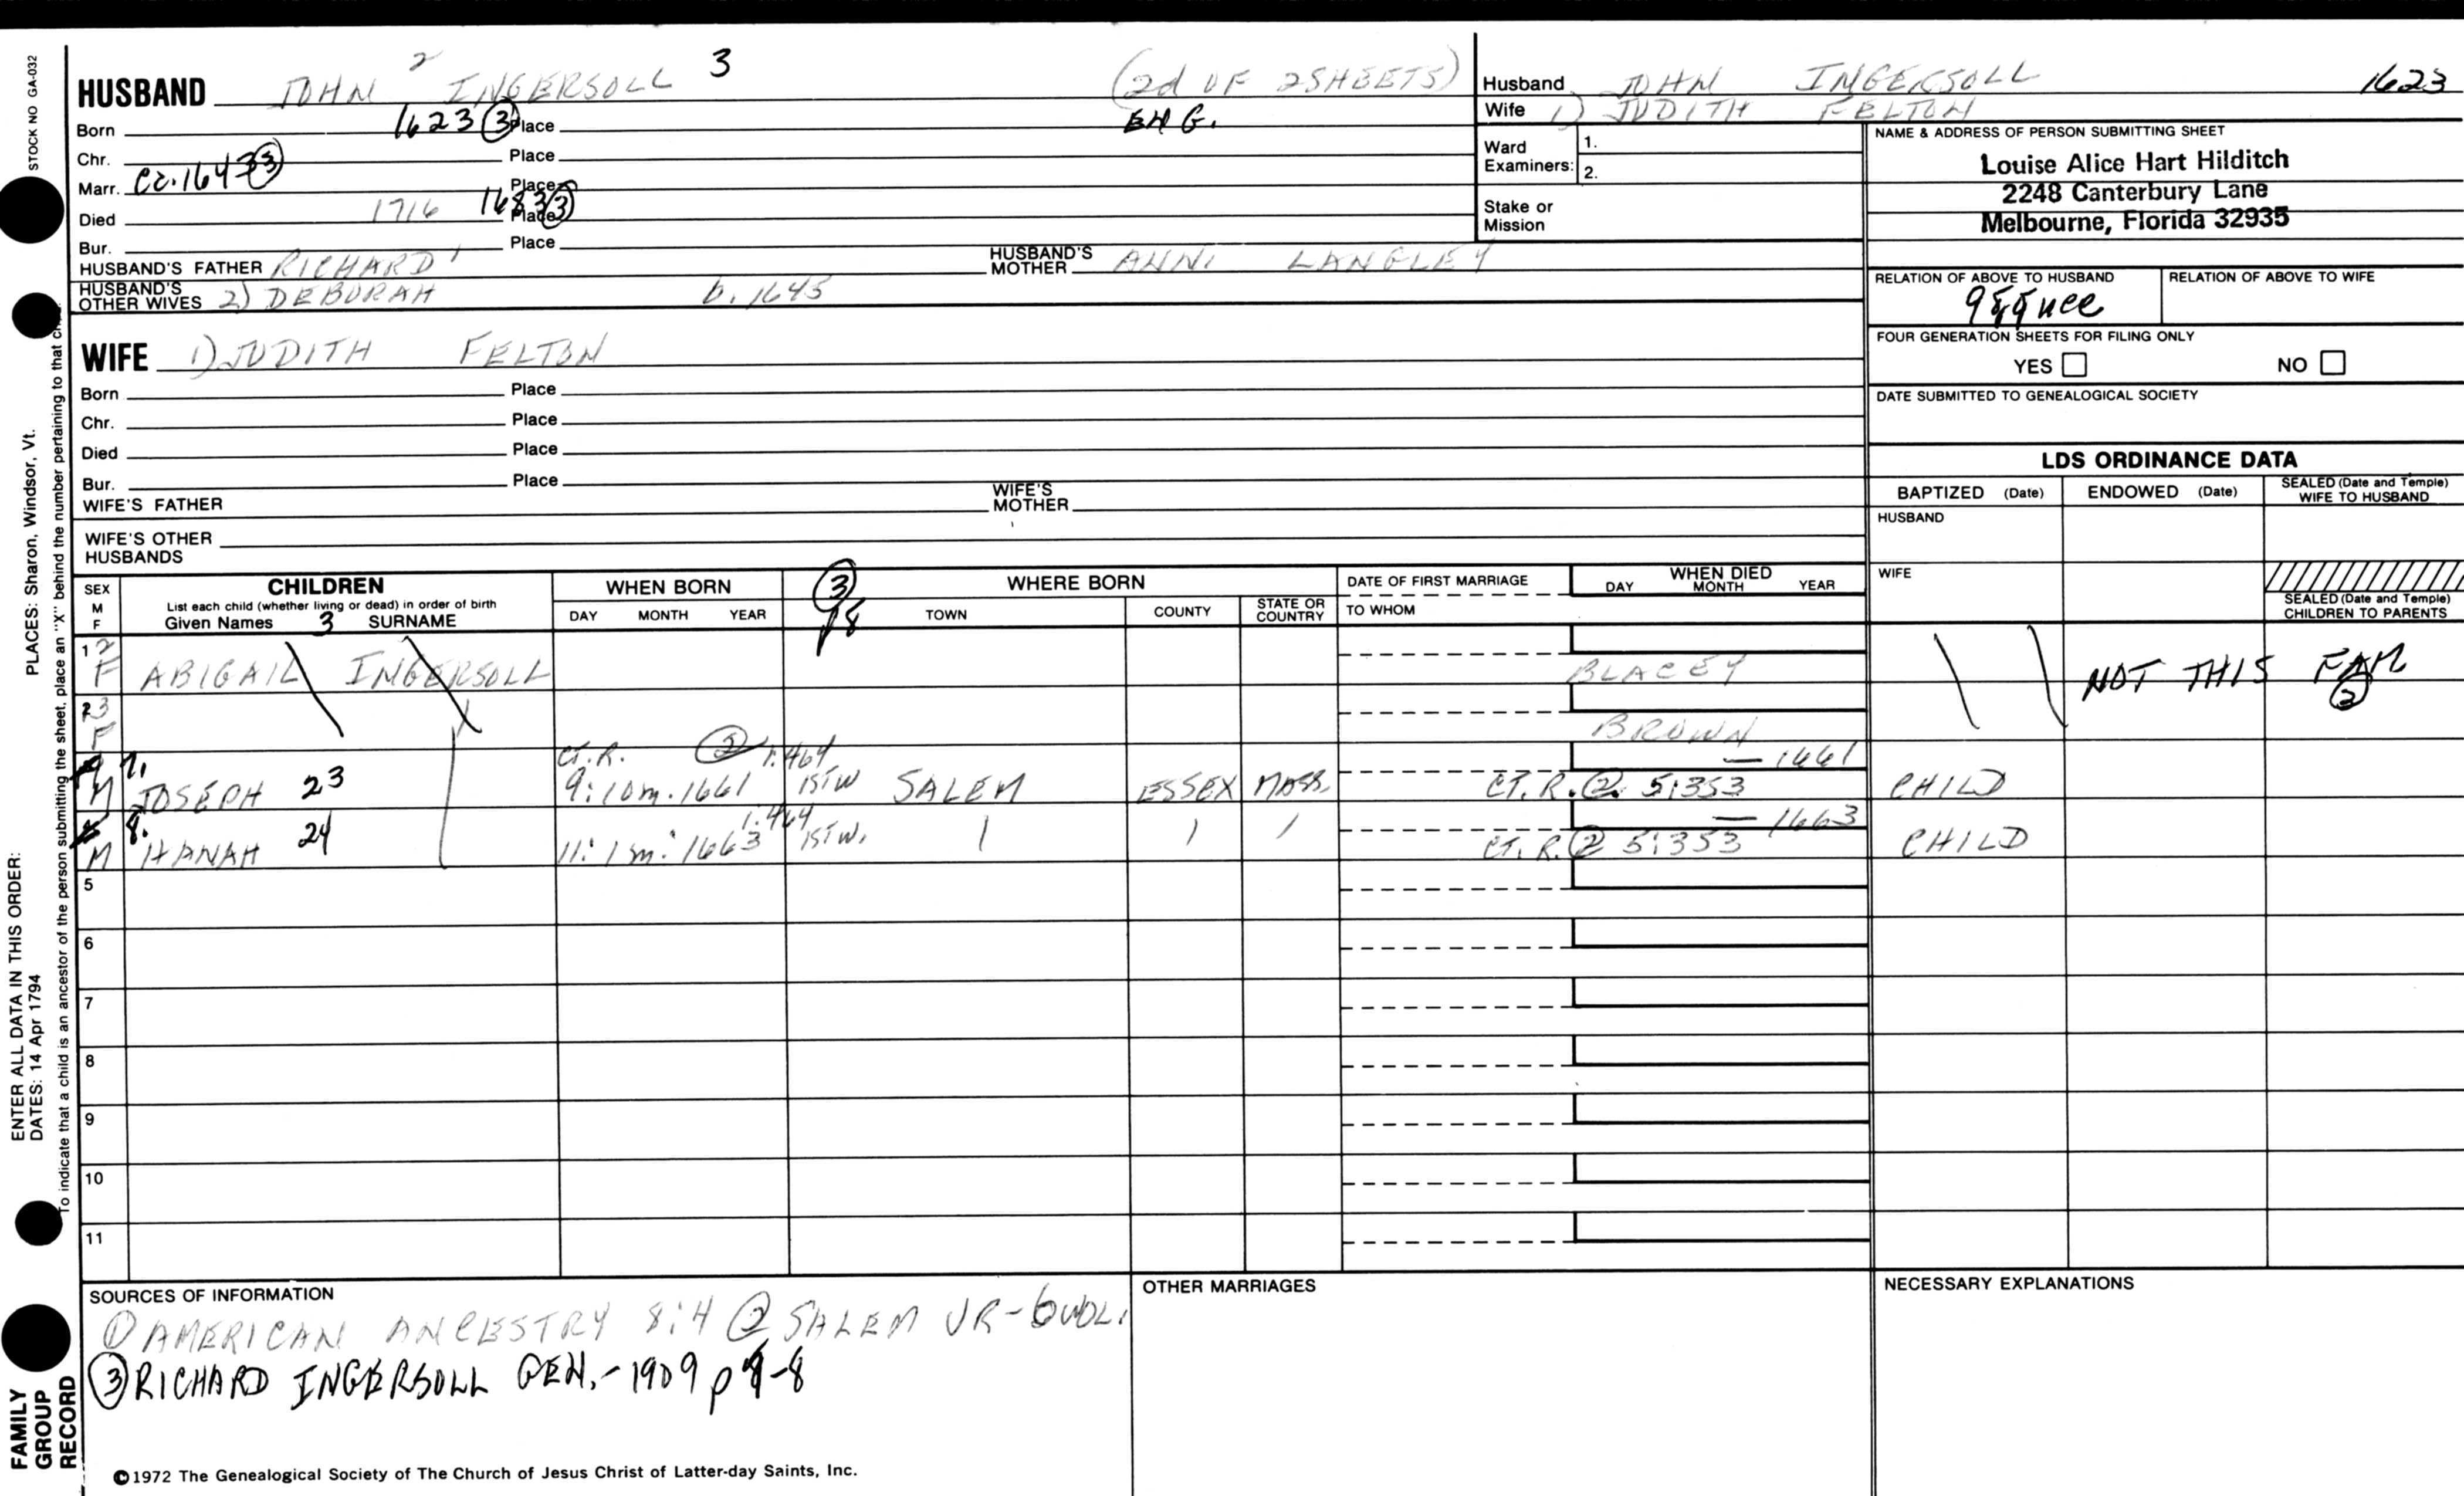 STOCK NO GA-032
HUSBAND JOHN 2 INGERSOLL 3 (2d OF 2 SHEETS)
Born 1623 (3) Place ENG.
Chr. Place
Marr. Ca. 1643 (3) Place
Died 1716 1683 (3) Place
Bur. Place
HUSBAND'S FATHER RICHARD 1 HUSBAND'S MOTHER ANN LANGLEY
HUSBAND'S OTHER WIVES 2) DEBORAH b. 1645
WIFE 1) JUDITH FELTON
Born Place
Chr. Place
Died Place
Bur. Place
WIFE'S FATHER WIFE'S MOTHER
WIFE'S OTHER HUSBANDS
Husband JOHN INGERSOLL 1623
Wife 1) JUDITH FELTON
Ward Examiners: 1.
2.
Stake or Mission
NAME & ADDRESS OF PERSON SUBMITTING SHEET
Louise Alice Hart Hilditch
2248 Canterbury Lane
Melbourne, Florida 32935
RELATION OF ABOVE TO HUSBAND RELATION OF ABOVE TO WIFE
FOUR GENERATION SHEETS FOR FILING ONLY
YES NO
DATE SUBMITTED TO GENEALOGICAL SOCIETY
LDS ORDINANCE DATA
BAPTIZED (Date) ENDOWED (Date) SEALED (Date and Temple) WIFE TO HUSBAND
HUSBAND
WIFE
SEALED (Date and Temple) CHILDREN TO PARENTS
SEX M F
CHILDREN
List each child (whether living or dead) in order of birth
Given Names 3 SURNAME
WHEN BORN
DAY MONTH YEAR
(3) p8
WHERE BORN
TOWN COUNTY STATE OR COUNTRY
DATE OF FIRST MARRIAGE
TO WHOM
WHEN DIED
DAY MONTH YEAR
1 2 F ABIGAIL INGERSOLL BLACEY NOT THIS FAM (2)
2 3 F BROWN
7. M JOSEPH 23 CT.R. (2) 1:464 9:10m.1661 1ST W SALEM ESSEX MASS. — 1661 CT. R. (2) 5:353 CHILD
8. M HANAH 24 1:464 11:1m:1663 1ST W. — 1663 CT. R. (2) 5:353 CHILD
5
6
7
8
9
10
11
SOURCES OF INFORMATION
(1) AMERICAN ANCESTRY 8:4 (2) SALEM VR-6VOL.
(3) RICHARD INGERSOLL GEN.-1909 p 9-8
OTHER MARRIAGES
NECESSARY EXPLANATIONS
©1972 The Genealogical Society of The Church of Jesus Christ of Latter-day Saints, Inc.
ENTER ALL DATA IN THIS ORDER:
DATES: 14 Apr 1794 PLACES: Sharon, Windsor, Vt.
To indicate that a child is an ancestor of the person submitting the sheet, place an "X" behind the number pertaining to that
FAMILY GROUP RECORD